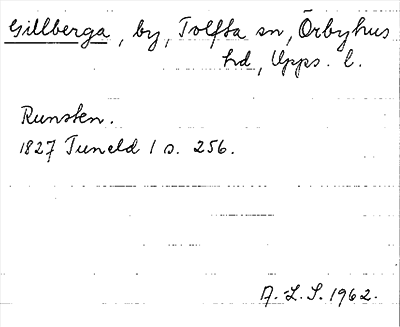 Gillberga, by, Tolfta sn, Örbyhus
hd, Upps. l.
Runsten.
1827 Tuneld 1 s. 256.
A.-L.S. 1962.